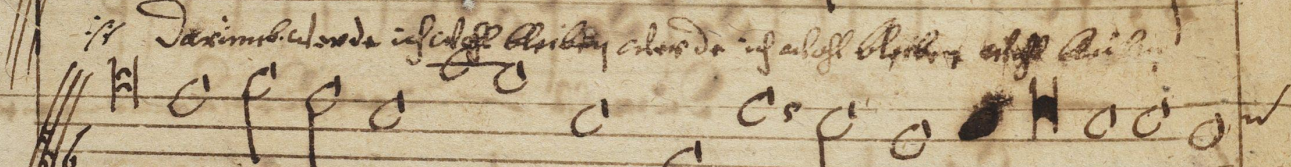 ist Darumb werde ich wohl bleiben werde ich wohl bleiben wohl